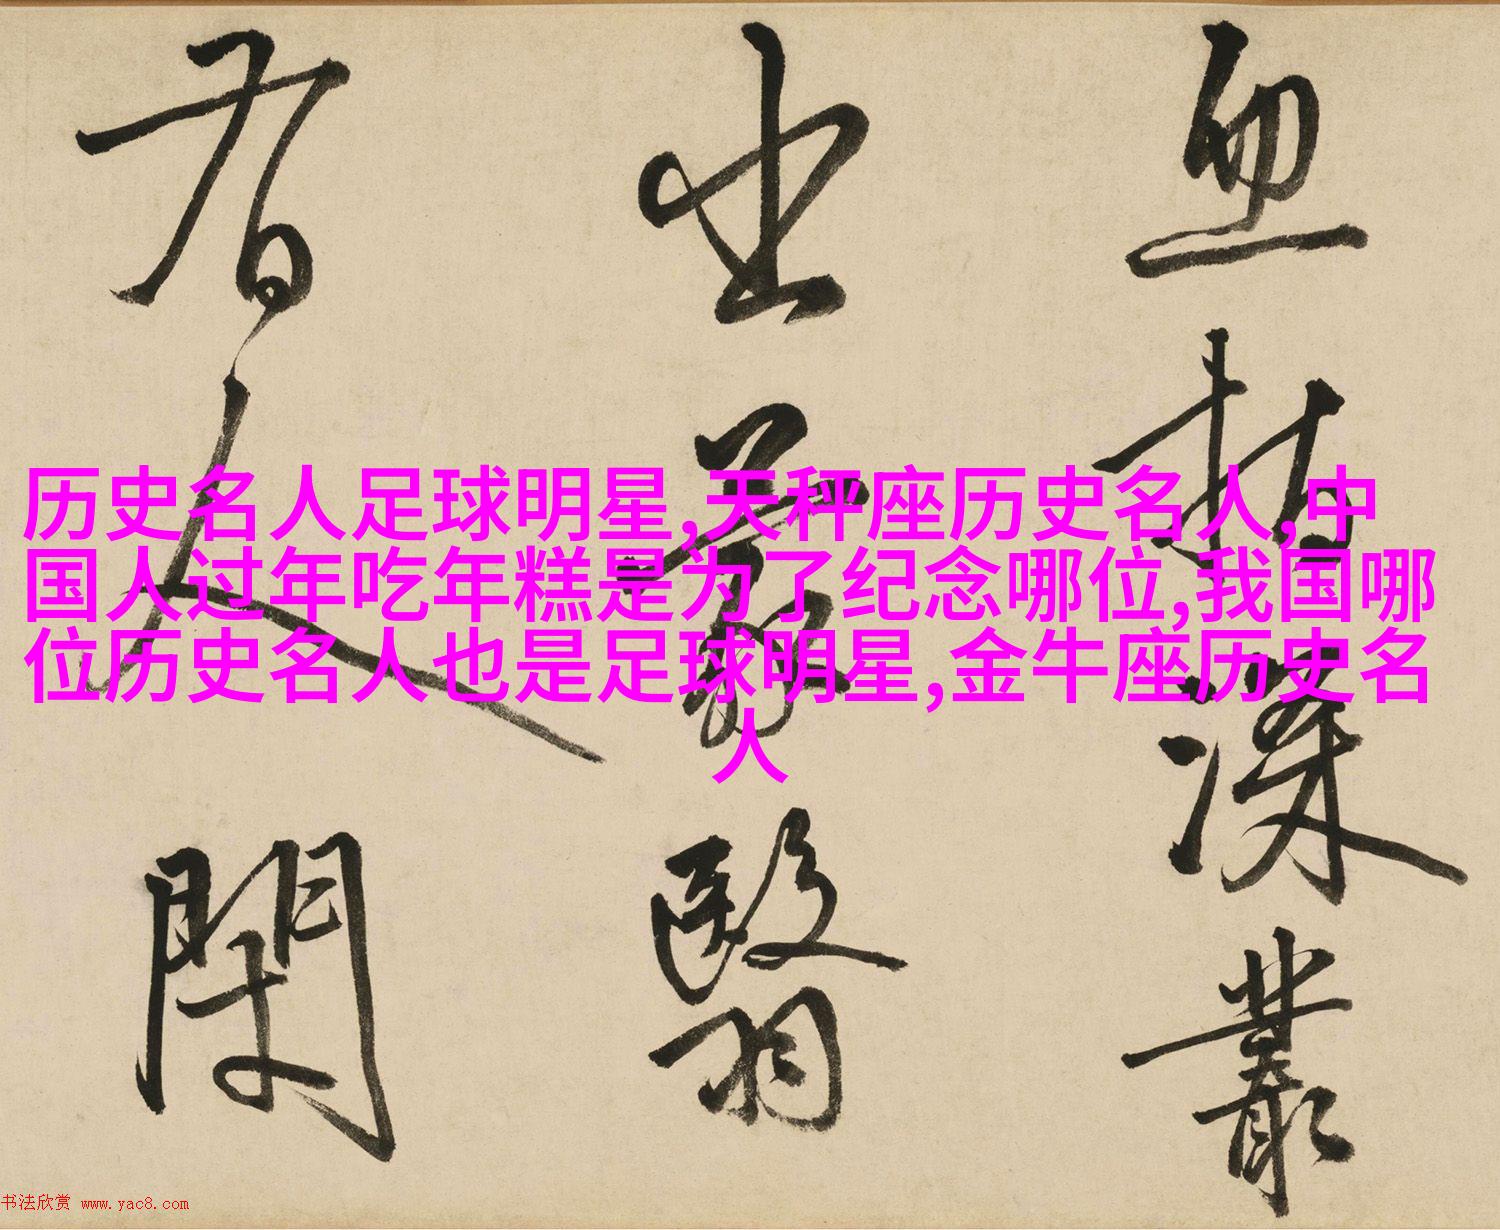 历史名人足球明星,天秤座历史名人,中
国人过年吃年糕是为了纪念哪位,我国哪
位历史名人也是足球明星,金牛座历史名
人
深叢
翳
人
书法欣赏 www.yac8.com